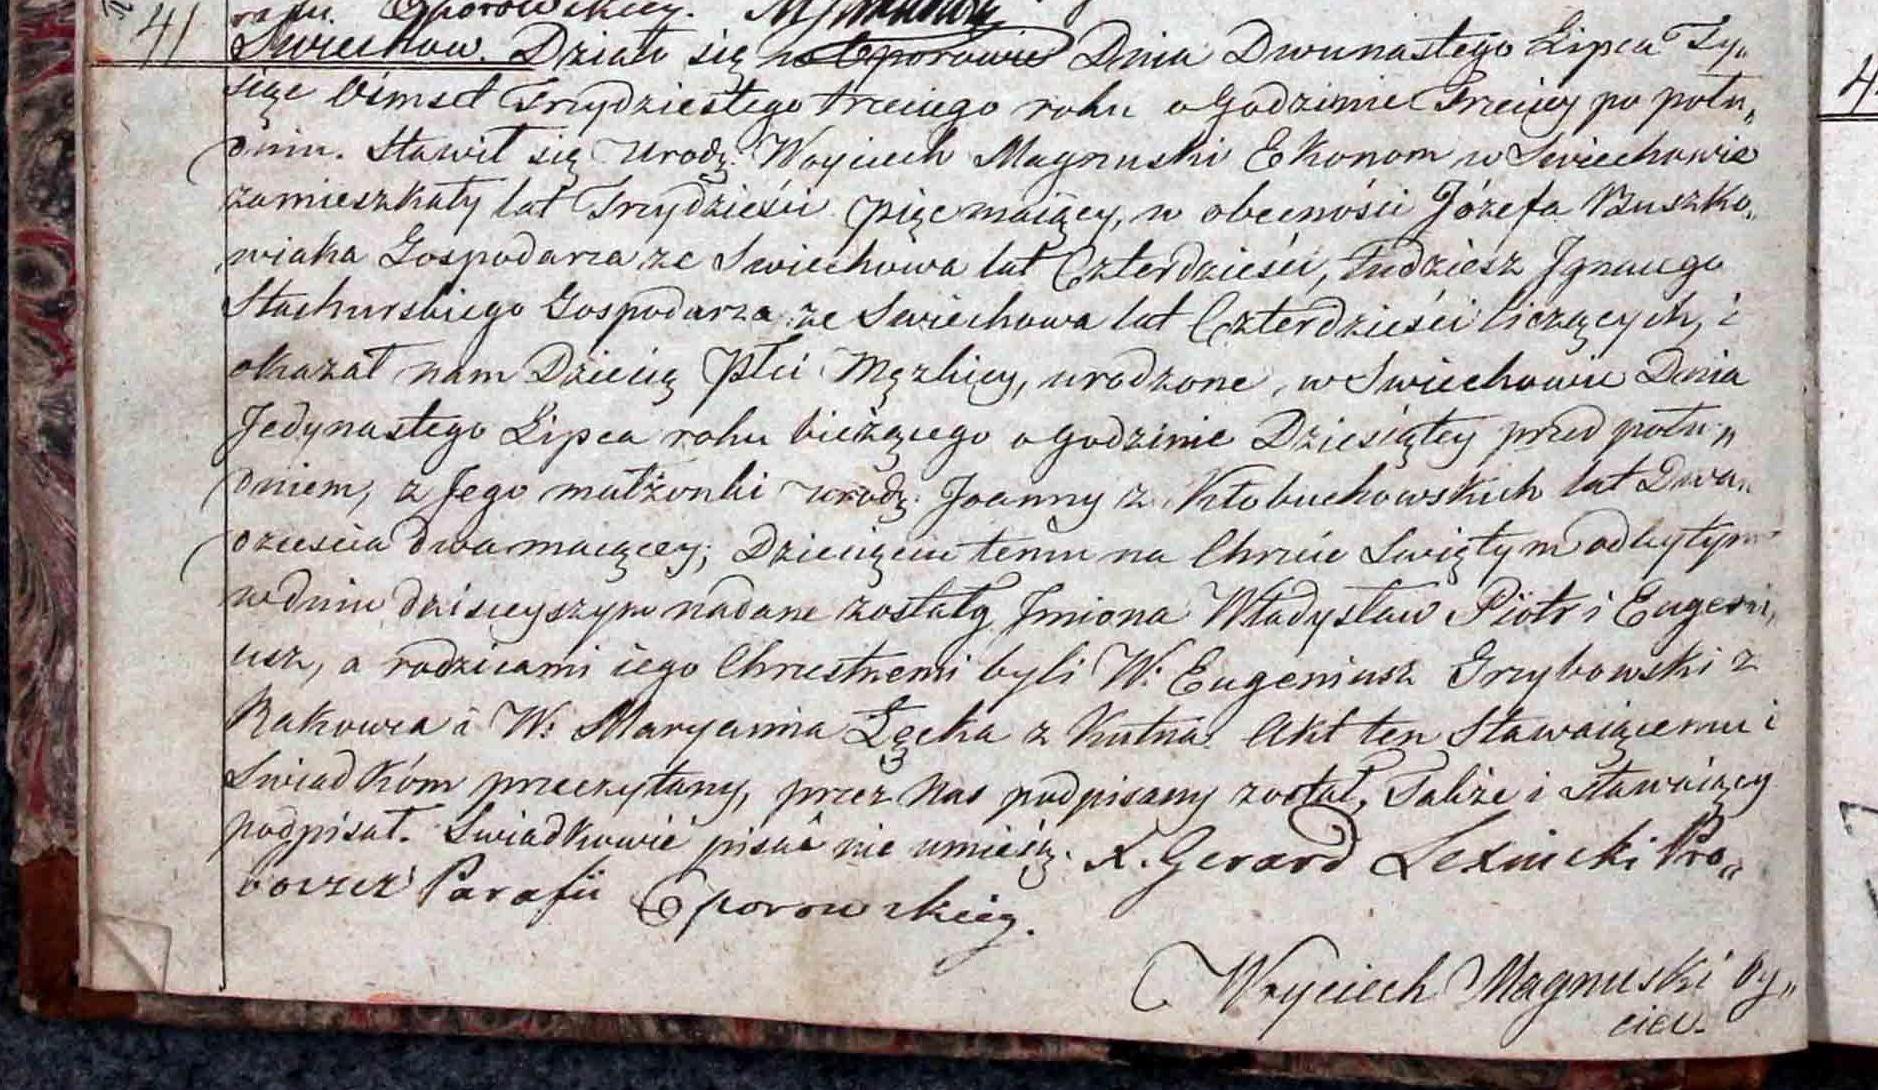 41
Oporowskiey.
Swiechow. Działo się w Oporowie Dnia Dwunastego Lipca Ty„
siąc Ośmset Trzydziestego trzeciego roku o Godzinie Trzeciey po połu„
dniu. Stawił się Urodz. Woyciech Magnuski Ekonom w Swiechowie
zamieszkały lat Trzydzieści pięć maiący, w obecności Józefa Buszko„
wiaka Gospodarza ze Swiechowa lat Czterdzieści, tudziesz Jgnacego
Stachurskiego Gospodarza ze Swiechowa lat Czterdzieści liczących, i
okazał nam Dziecię Płci Męzkiey, urodzone w Swiechowie Dnia
Jedynastego Lipca roku bieżącego o godzinie Dziesiątey przed połu„
dniem, z Jego małżonki urodz. Joanny z Kłobuchowskich lat Dwa„
dzieścia dwa maiącey; Dziecięciu temu na Chrzcie Swiętym odbytym
w dniu dzisieyszym nadane zostały Jmiona Władysław Piotr i Eugeni„
usz, a rodzicami iego Chrzestnemi byli W: Eugeniusz Grzybowski z
Rakowca i W: Maryanna Łęcka z Kutna. Akt ten Stawaiącemu i
Swiadkóm przeczytany, przez Nas podpisany został, Także i Stawaiący
podpisał. Swiadkowie pisać nie umieią. X. Gerard Lexnicki Pro„
boszcz Parafii Oporowskiey.
Woyciech Magnuski Oy„
ciec.
4